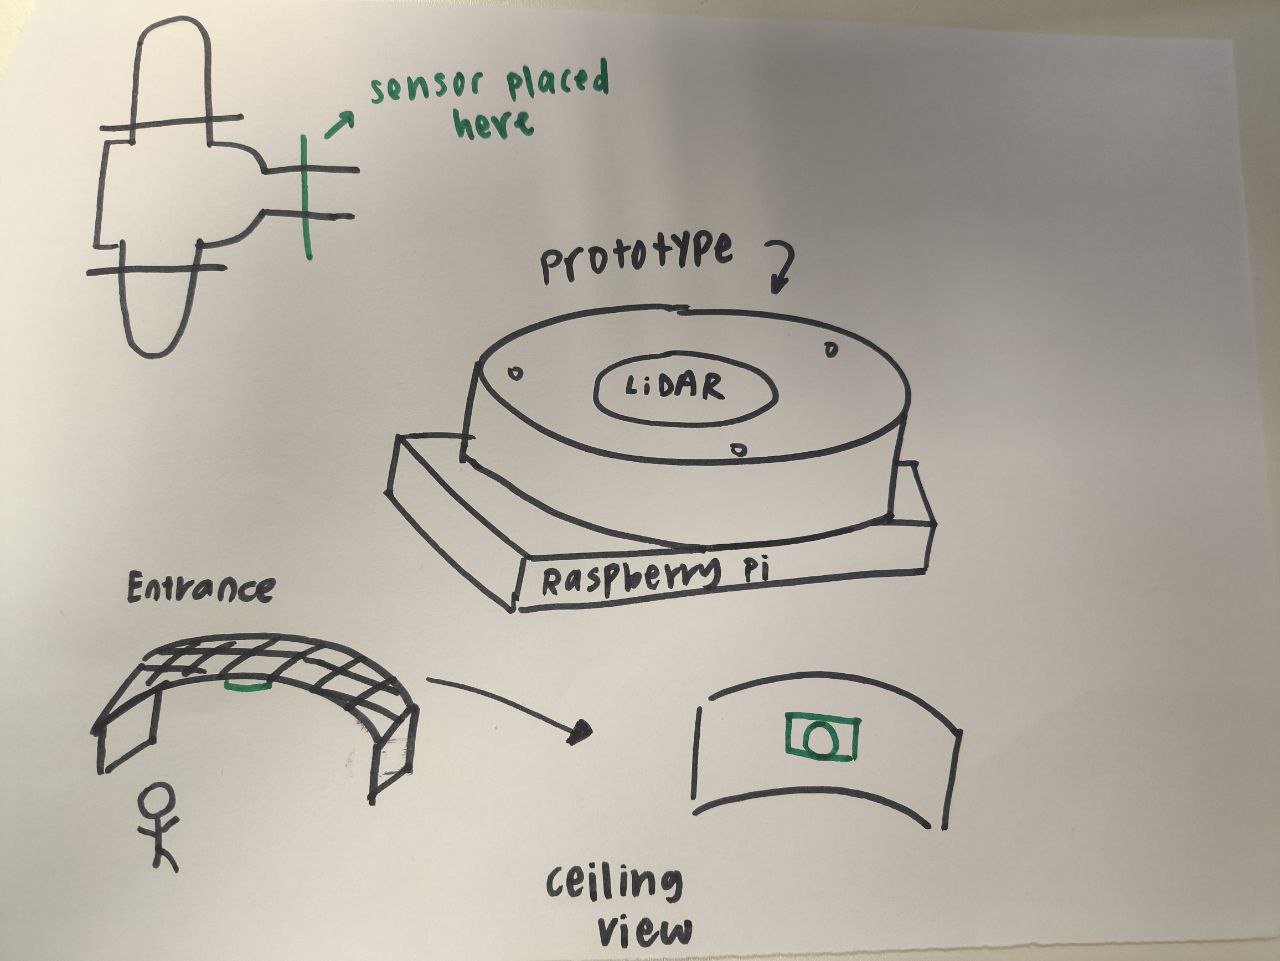 sensor placed
here
prototype
LiDAR
Raspberry Pi
Entrance
ceiling
view